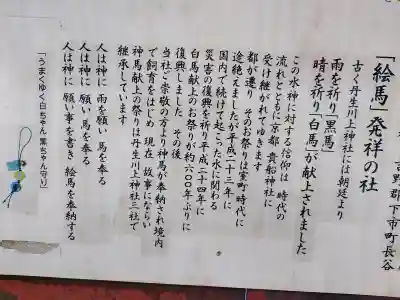 吉野郡下市町長谷
「絵馬」発祥の社
古く丹生川上神社には朝廷より
雨を祈り「黒馬」
晴を祈り「白馬」が献上されました
この水神に対する信仰は 時代の
流れとともに京都 貴船神社に
受け継がれてゆきます
都が遷り そのお祭りは室町時代に
途絶えましたが平成二十三年に
国内で続けて起こった水に関わる
災害の復興を祈り平成二十四年に
白馬献上のお祭りが約六〇〇年ぶりに
復興しました その後
当社ご崇敬の方より神馬が奉納され境内
で飼育をはじめ 現在 故事にならい
神馬献上の祭りは丹生川上神社三社で
継承しています
人は神に 雨を願い 馬を奉る
人は神に 願い 馬を奉る
人は神に 願い事を書き 絵馬を奉納する
「うまくゆく白ちゃん 黒ちゃん守り」